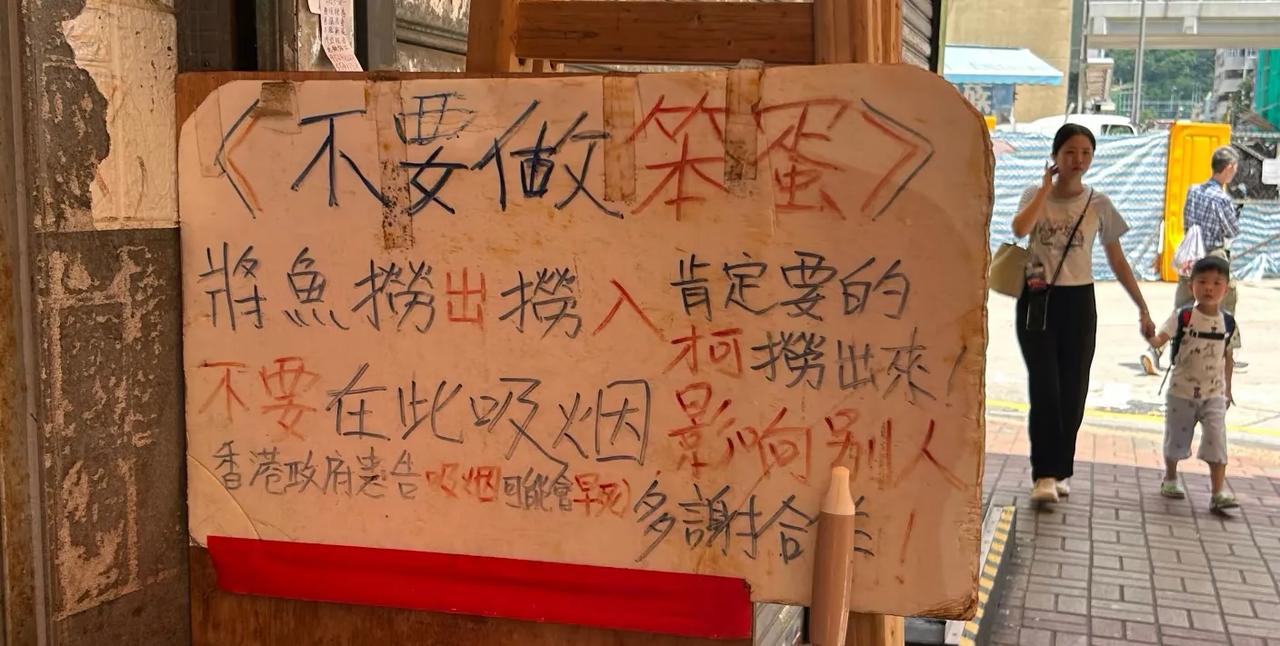 《不要做笨蛋》
將魚撈出撈入
肯定要的
柯撈出來！
不要在此吸烟
影响别人
香港政府忠告吸烟可能會早死）
多謝拾！